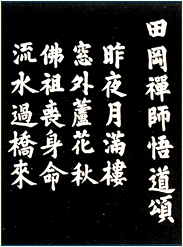 田岡禪師悟道頌
昨夜月滿樓
窓外蘆花秋
佛祖喪身命
流水過橋來